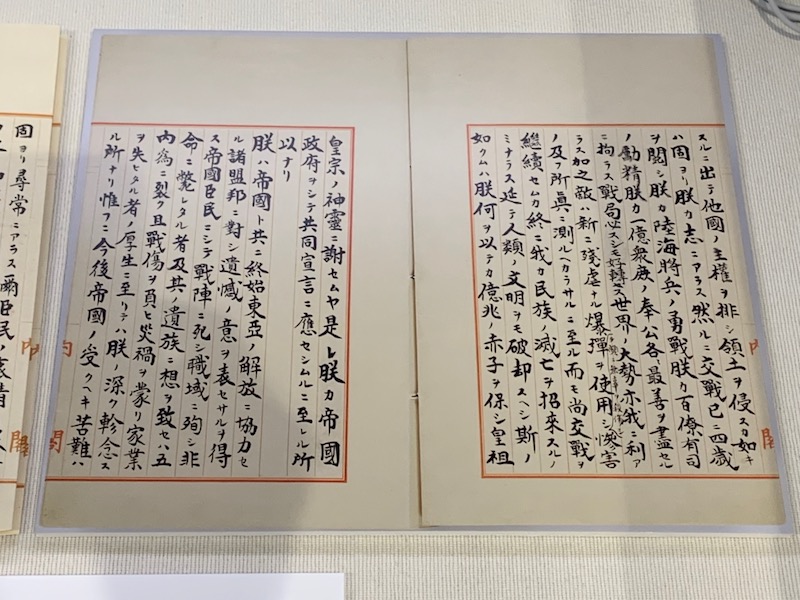 スルニ出テ他國ノ主權ヲ排シ領土ヲ侵スカ如キ
ハ固ヨリ朕カ志ニアラス然ルニ交戰已ニ四歳
ヲ閲シ朕カ陸海將兵ノ勇戰朕カ百僚有司
ノ勵精朕カ一億衆庶ノ奉公各最善ヲ盡セル
ニ拘ラス戰局必スシモ好轉セス世界ノ大勢亦我ニ利ア
ラス加之敵ハ新ニ残虐ナル爆彈ヲ使用シ惨害
ノ及フ所眞ニ測ルヘカラサルニ至ル而モ尚交戰ヲ
繼續セムカ終ニ我カ民族ノ滅亡ヲ招來スルノ
ミナラス延テ人類ノ文明ヲモ破却スヘシ斯ノ
如クムハ朕何ヲ以テカ億兆ノ赤子ヲ保シ皇祖
閣
皇宗ノ神靈ニ謝セムヤ是レ朕カ帝國
政府ヲシテ共同宣言ニ應セシムルニ至レル所
以ナリ
朕ハ帝國ト共ニ終始東亞ノ解放ニ協力セ
ル諸盟邦ニ對シ遺憾ノ意ヲ表セサルヲ得
ス帝國臣民ニシテ戰陣ニ死シ職域ニ殉シ非
命ニ斃レタル者及其ノ遺族ニ想ヲ致セハ五
内為ニ裂ク且戰傷ヲ負ヒ災禍ヲ蒙リ家業
ヲ失ヒタル者ノ厚生ニ至リテハ朕ノ深ク軫念ス
ル所ナリ惟フニ今後帝國ノ受クヘキ苦難ハ
内閣
内閣
固ヨリ尋常ニアラス爾臣民ノ衷情